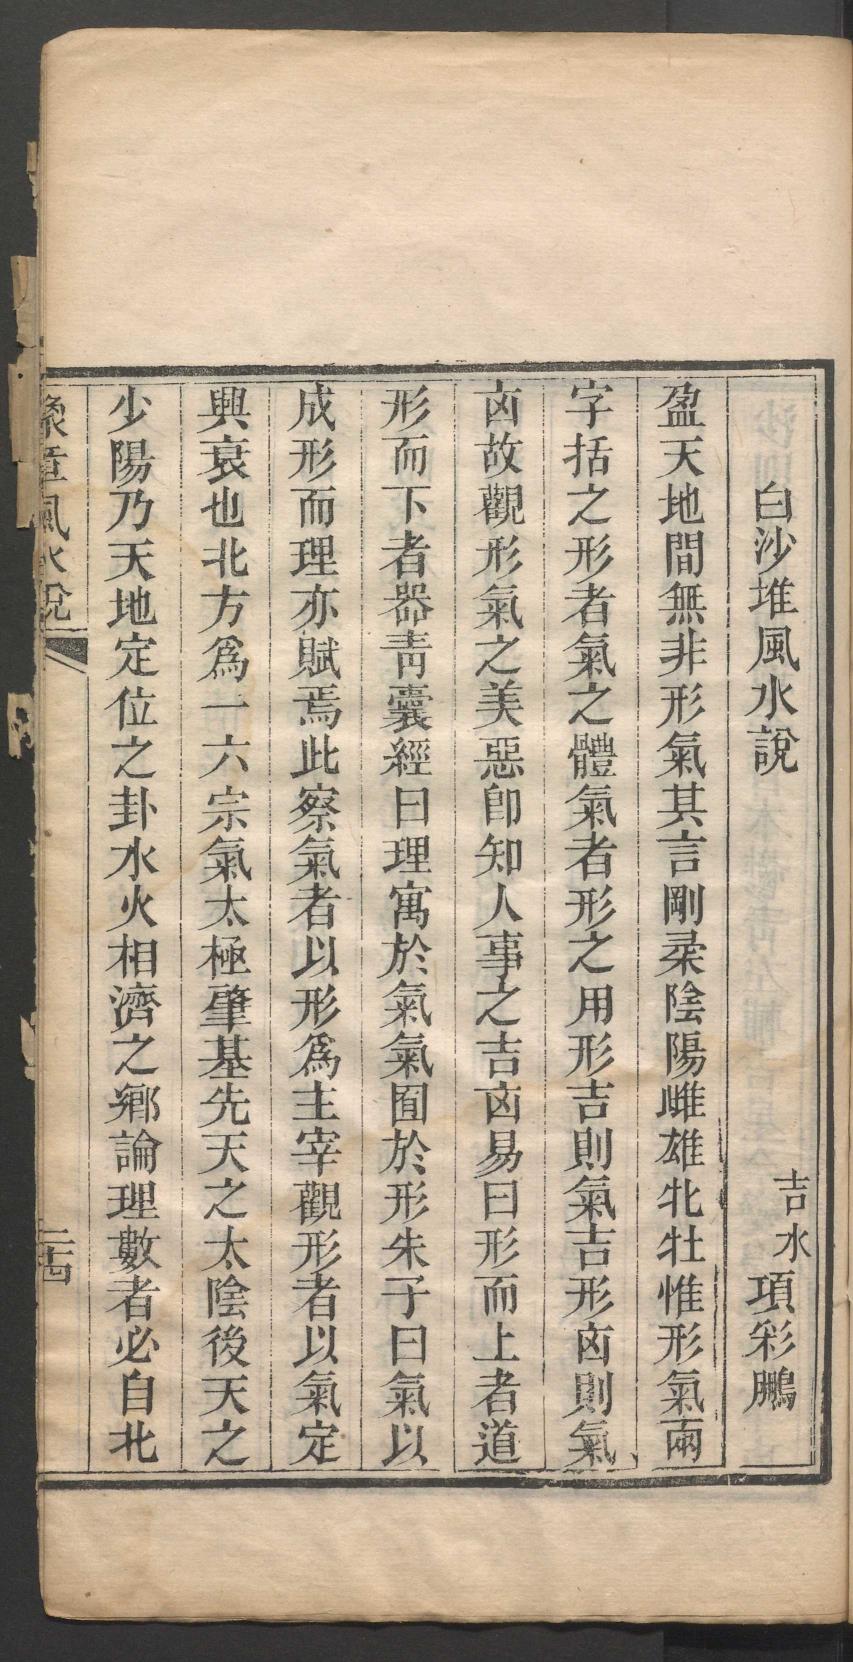 白沙堆風水說
吉水項彩鵬
盈天地間無非形氣其言剛柔陰陽雌雄牝牡惟形氣兩
字括之形者氣之體氣者形之用形吉則氣吉形凶則氣
凶故觀形氣之美惡卽知人事之吉凶易曰形而上者道
形而下者器靑囊經曰理寓於氣氣囿於形朱子曰氣以
成形而理亦賦焉此察氣者以形爲主宰觀形者以氣定
興衰也北方爲一六宗氣太極肇基先天之太陰後天之
少陽乃天地定位之卦水火相濟之鄉論理數者必自北
章風水說
二十四